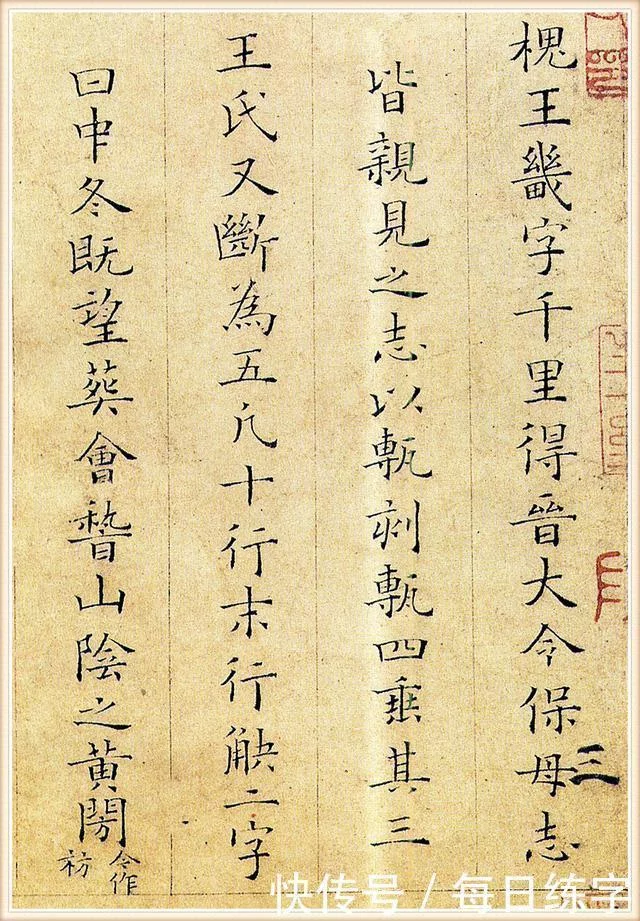 槐王畿字千里得晉大令保母志
三
皆親見之志以甎刻甎四垂其三
王氏又斷為五凡十行末行觖二字
曰中冬既望葬會稽山陰之黃閍
今作
祊
快传号 / 每日练字